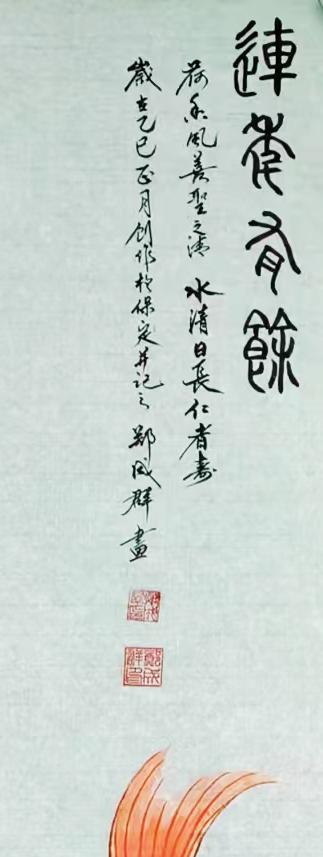 連年有餘
荷香風善聖之清 水清日長仁者壽
歲在乙巳正月创作於保定并記之 鄭成群畫